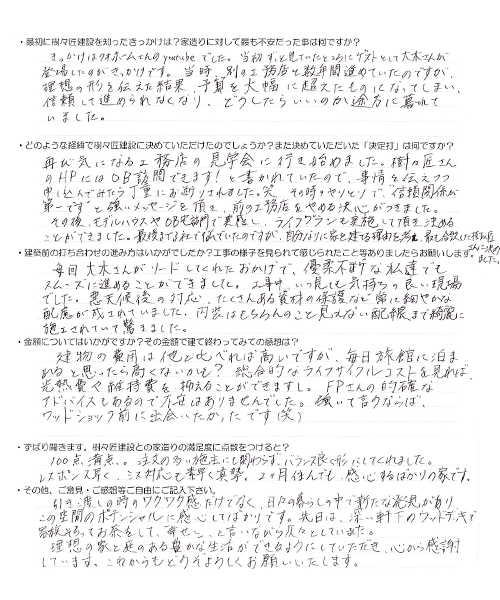 ・最初に樹々匠建設を知ったきっかけは？家造りに対して最も不安だった事は何ですか？
きっかけはウオホームくんのyoutubeでした。当初ずっと見ていたところにゲストとして大木さんが
登場したのがきっかけです。当時、別の工務店と数年間進めていたのですが、
理想の形を伝えた結果、予算を大幅に超えたものになってしまい、
信頼して進められなくなり、どうしたらいいのか途方に暮れて
いました。
・どのような経緯で樹々匠建設に決めていただけたのでしょうか？また決めていただいた「決定打」は何ですか？
再び気になる工務店の見学会に行き始めました。樹々匠さん
のHPにはOB訪問できます！と書かれていたので、事情を伝えつつ
申し込んでみたら丁寧にお断りされました。笑 その時のやりとりで「信頼関係が
第一です」と強いメッセージを頂き、前の工務店をやめる決心がつきました。
その後、モデルハウスやOB宅訪問で実感し、ライフプランも実施して頂き決める
ことができました。最後まで2社で悩んでいたのですが、自分なりに家を建てる理由を考え、最も合致した樹々匠
さんに決め
ました。
・建築前の打ち合わせの進み方はいかがでしたか？工事の様子を見られて感じられたこと等ありましたらお願いします。
毎回大木さんがリードしてくれたおかげで、優柔不断な私達でも
スムーズに進めることができました。工事中、いつ見ても気持ちの良い現場
でした。悪天候後の対応、たくさんある資材の保護など常に細やかな
配慮が成されていました。内装はもちろんのこと見えない配線まで綺麗に
施工されていて驚きました。
・金額についてはいかがですか？その金額で建て終わってみての感想は？
建物の費用は他と比べれば高いですが、毎日旅館に泊ま
れると思ったら高くないかも？総合的なライフサイクルコストを見れば、
光熱費や維持費を抑えることができますし。FPさんの的確な
アドバイスもあるので不安はありませんでした。強いて言うならば、
ウッドショック前に出会いたかったです(笑)
・ずばり聞きます。樹々匠建設との家造りの満足度に点数をつけると？
100点満点。注文の多い施主にも関わらず、バランス良く形にしてくれました。
レスポンス早く、ミス対応も素早く真摯。2ヶ月住んでも感心するばかりの家です。
・その他、ご意見・ご感想等ご自由にご記入下さい。
引き渡しの時のワクワク感だけでなく、日々の暮らしの中で新たな発見があり
この空間のポテンシャルに感心してばかりです。先日は、深い軒下のウッドデッキで
家族そろってお茶をして、幸せ〜、と言いながら灰々としていました。
理想の家と庭のある豊かな生活ができるようにしていただき、心から感謝
しています。これからもどうぞよろしくお願いいたします。